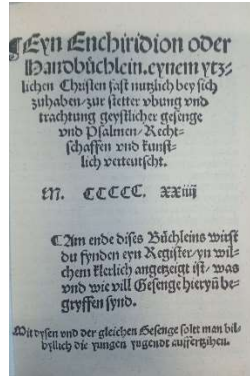 ¶Eyn Enchiridion oder
Handbüchlein. eynem ytz-
lichen Christen fast nutzlich bey sich
zuhaben/ zur stetter vbung vnd
trachtung geystlicher gesenge
vnd Psalmen/ Recht-
schaffen vnd kunst-
lich verteutscht.
M. CCCCC. XXiiij
¶Am ende dises Büchleins wirst
du fynden eyn Register/ yn wil-
chem klerlich angetzeigt ist/ was
vnd wie vill Gesenge hieryn be-
gryffen synd.
Mit dysen vnd der gleichen Gesenge solt man bil-
byllich die yungen yugendt auffertzihen.